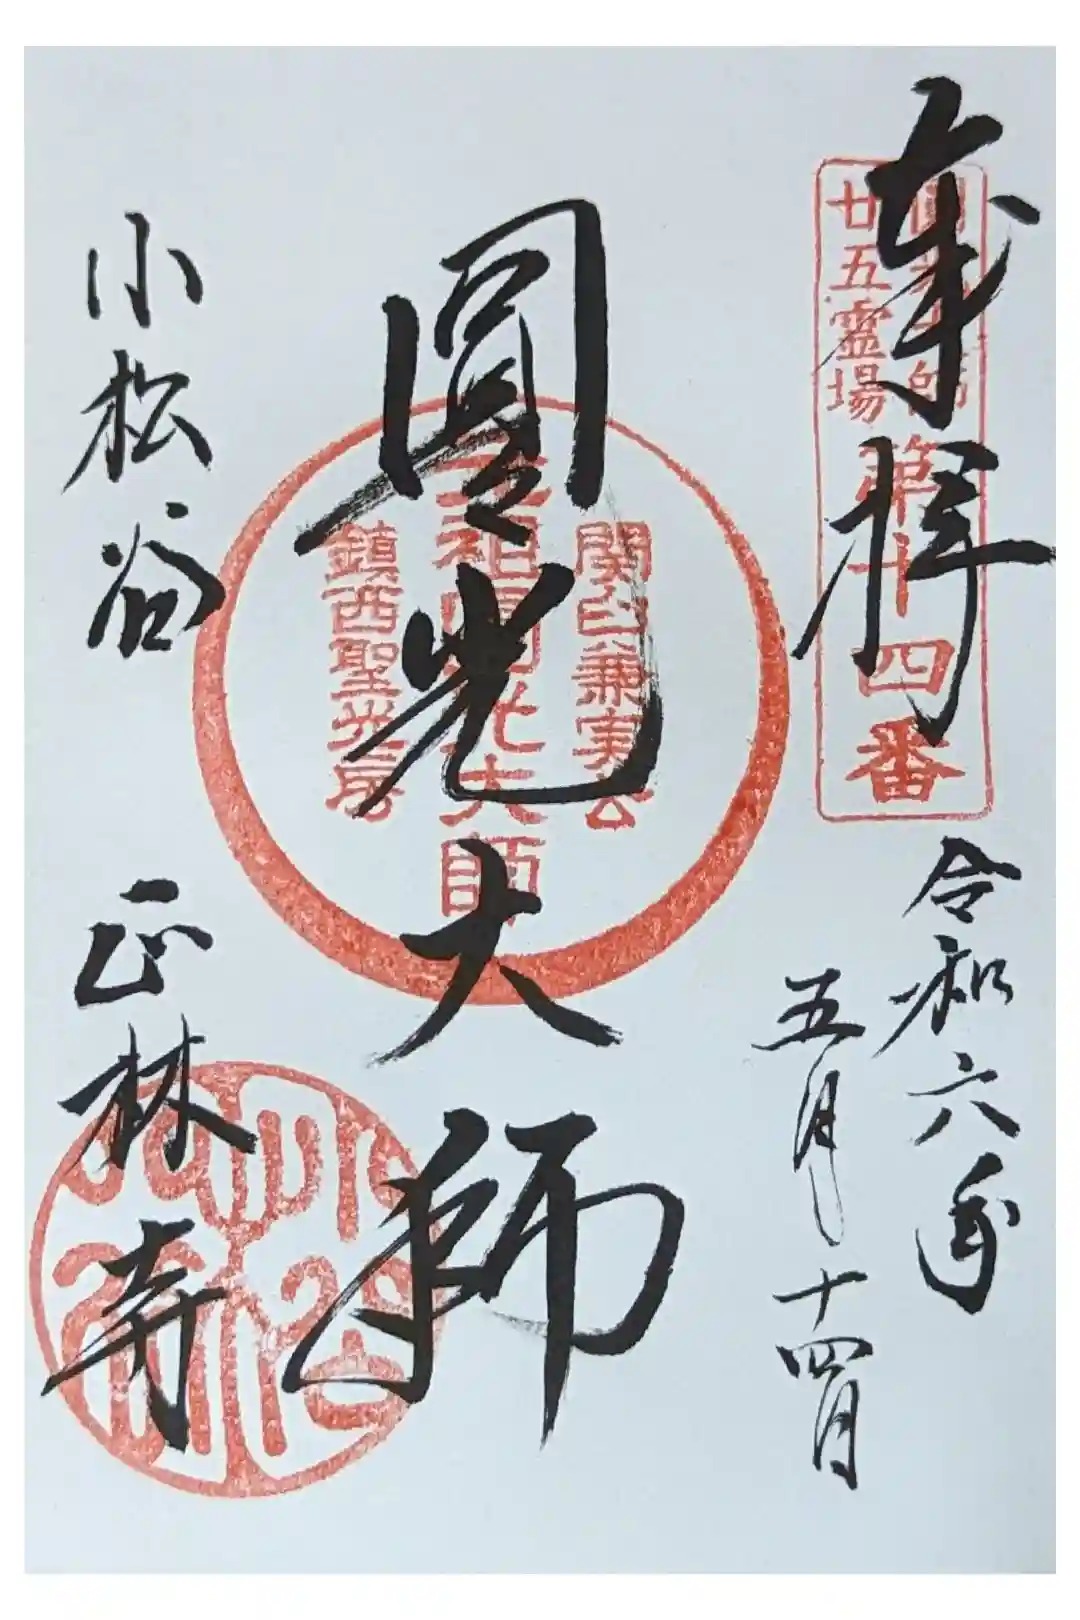 奉拝
圓光大師
廿五霊場
第十四番
令和六年
五月十四日
圓光大師
関白兼実公
元祖圓光大師
鎮西聖光房
小松谷
正林寺